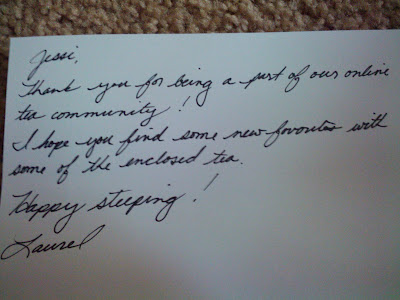 Jessi,
Thank you for being a part of our online
tea community!
I hope you find some new favorites with
some of the enclosed tea.
Happy steeping!
Laurel